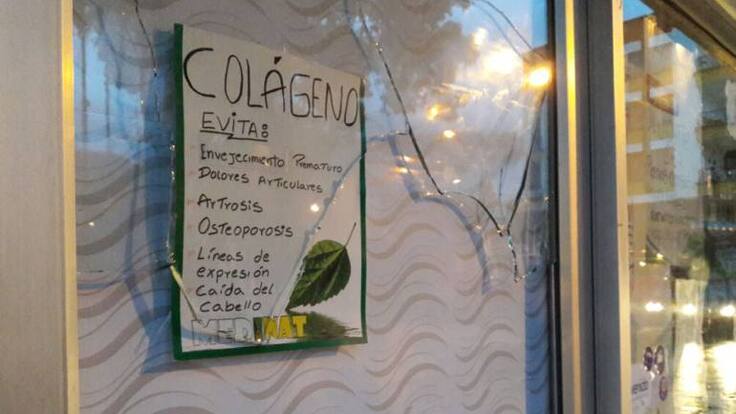 COLÁGENO
EVITA:
Envejecimiento Prematuro
Dolores Articulares
Artrosis
Osteoporosis
Líneas de
expresión
Caída del
Cabello